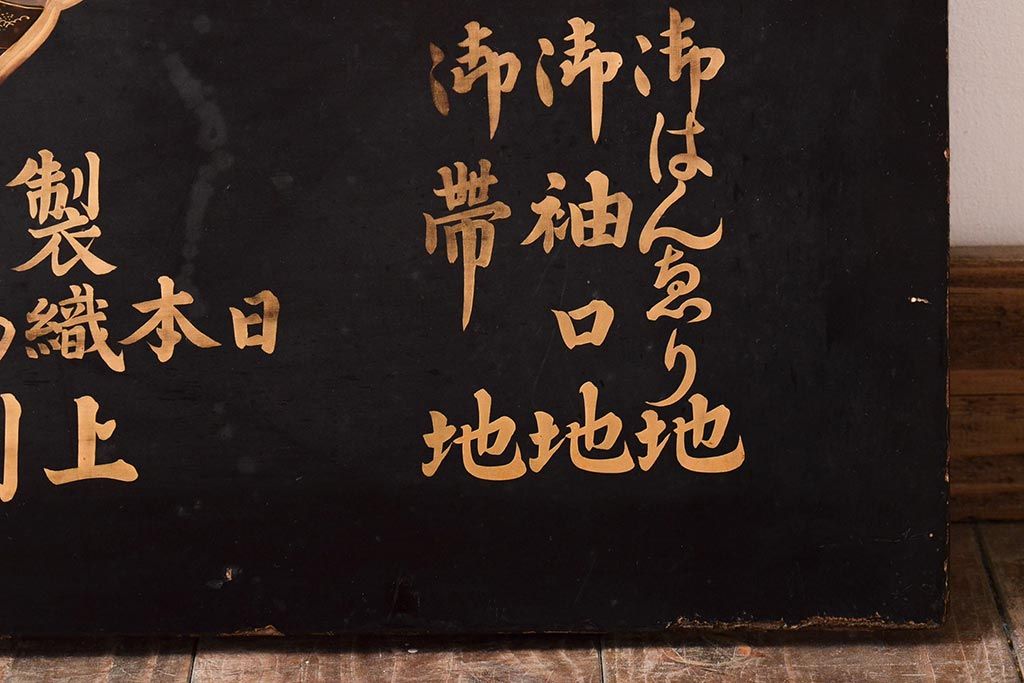 御はんゑり地
御袖口地
御帯地
日本織
製
上